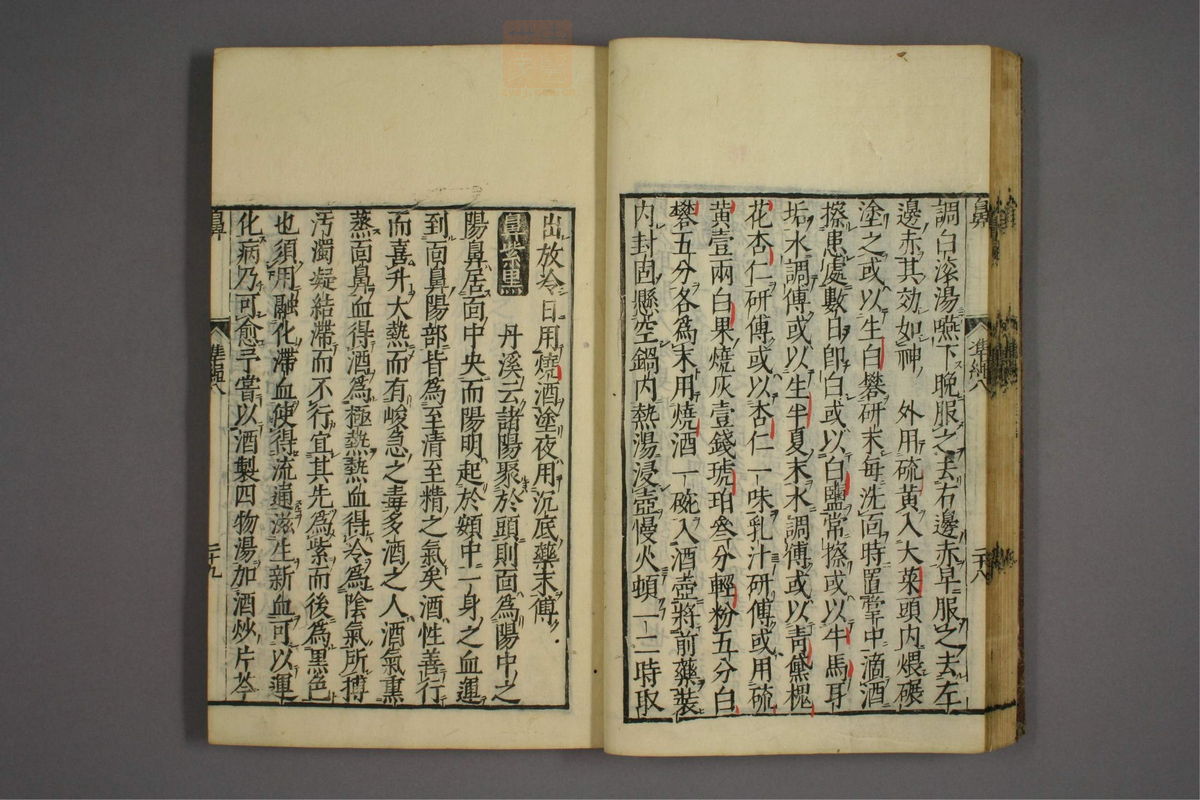 調白滚湯嚥下晚服之去右邊赤早服之去左
邊赤其効如神　外用硫黃入大菜頭内煨碾
塗之或以生白礬研末每洗面時置掌中滴酒
擦患處數日卽白或以白鹽常擦或以牛馬耳
垢水調傅或以生半夏末水調傅或以靑黛槐
花杏仁研傅或以杏仁一味乳汁研傅或用硫
黃壹兩白果燒灰壹錢琥珀叄分輕粉五分白
礬五分各爲末用燒酒一碗入酒壺將前藥裝
内封固懸空鍋内熱湯浸壺慢火頓一二時取
鼻
準繩八
二十八
出放冷日用燒酒塗夜用沉底藥末傅
鼻紫黑　丹溪云諸陽聚於頭則面爲陽中之
陽鼻居面中央而陽明起於頞中一身之血運
到面鼻陽部皆爲至清至精之氣矣酒性善行
而喜升大熱而有峻急之毒多酒之人酒氣熏
蒸面鼻血得酒爲極熱熱血得冷爲陰氣所搏
汚濁凝結滯而不行宜其先爲紫而後爲黑色
也須用融化滯血使得流通滋生新血可以運
化病乃可愈予嘗以酒製四物湯加酒炒片芩
鼻
準繩八
二十九